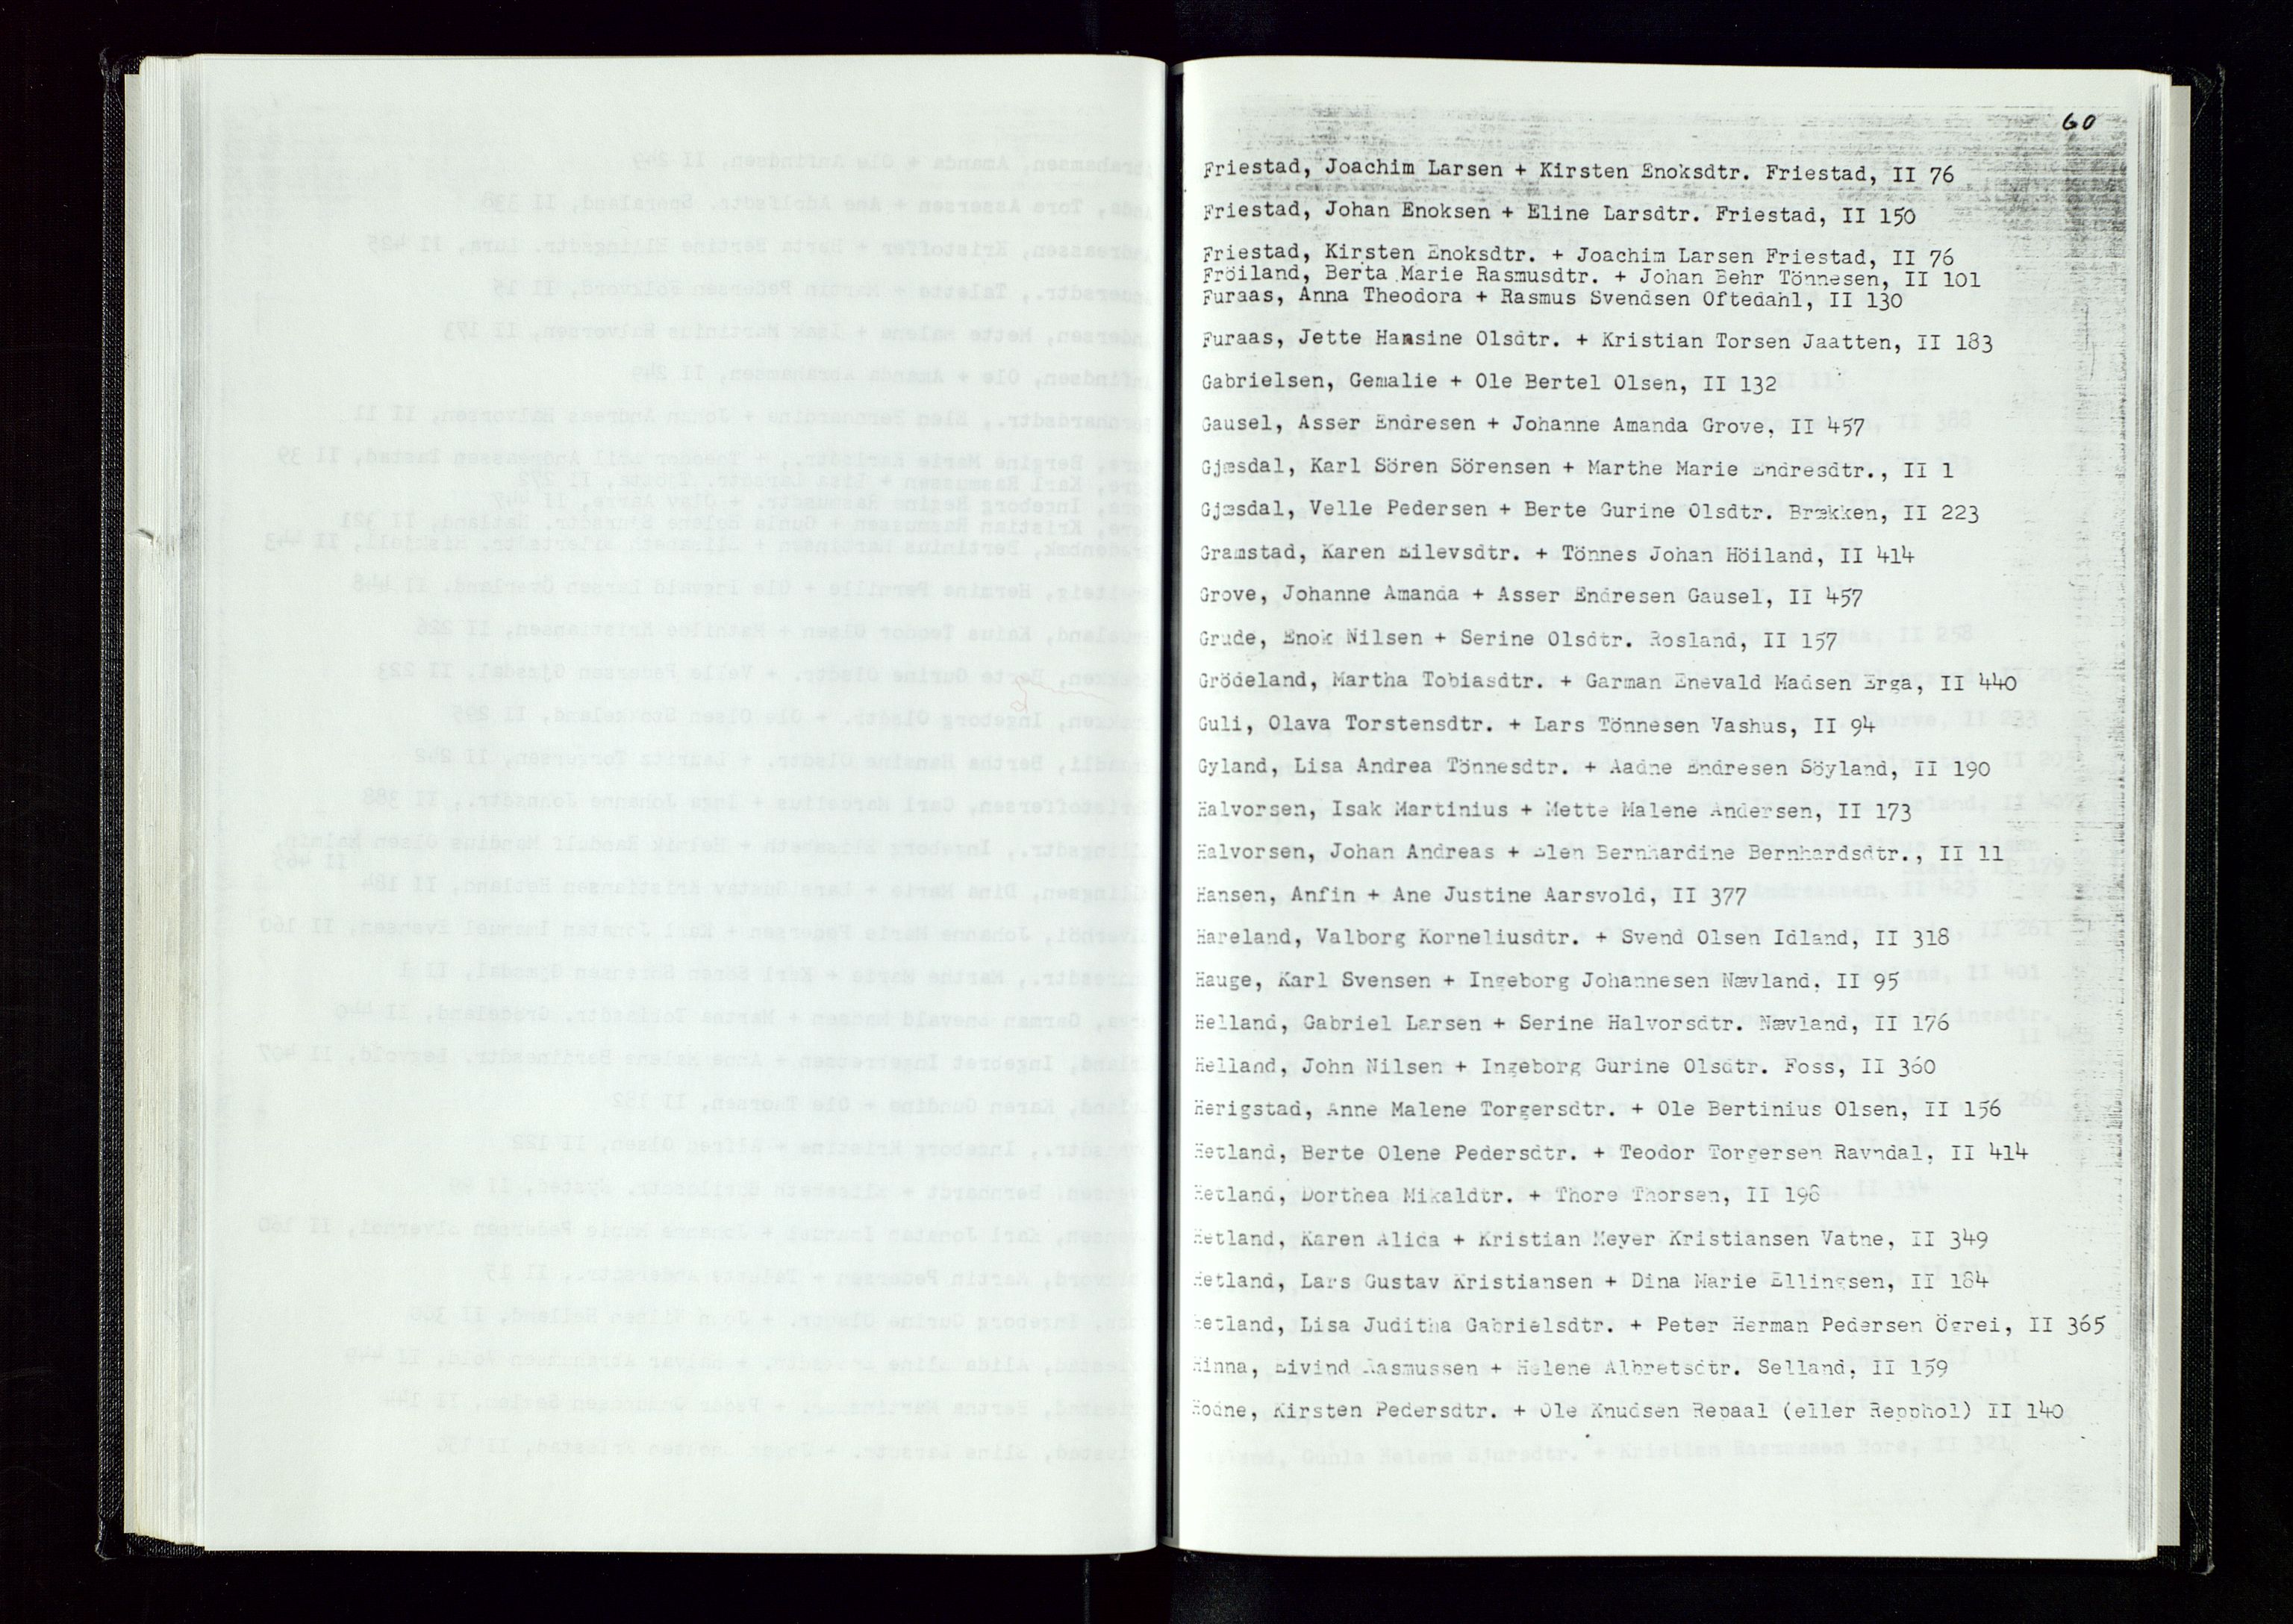 60
Friestad, Joachim Larsen + Kirsten Enoksdtr. Friestad, II 76
Friestad, Johan Enoksen + Eline Larsdtr. Friestad, II 150
Friestad, Kirsten Enoksdtr. + Joachim Larsen Friestad, II 76
Fröiland, Berta Marie Rasmusdtr. + Johan Behr Tönnesen, II 101
Furaas, Anna Theodora + Rasmus Svendsen Oftedahl, II 130
Furaas, Jette Hansine Olsdtr. + Kristian Torsen Jaatten, II 183
Gabrielsen, Gemalie + Ole Bertel Olsen, II 132
Gausel, Asser Endresen + Johanne Amanda Grove, II 457
Gjæsdal, Karl Sören Sörensen + Marthe Marie Endresdtr., II 1
Gjæsdal, Velle Pedersen + Berte Gurine Olsdtr. Brækken, II 223
Gramstad, Karen Eilevsdtr. + Tönnes Johan Höiland, II 414
Grove, Johanne Amanda + Asser Endresen Gausel, II 457
Grude, Enok Nilsen + Serine Olsdtr. Rosland, II 157
Grödeland, Martha Tobiasdtr. + Garman Enevald Madsen Erga, II 440
Guli, Olava Torstensdtr. + Lars Tönnesen Vashus, II 94
Gyland, Lisa Andrea Tönnesdtr. + Aadne Endresen Söyland, II 190
Halvorsen, Isak Martinius + Mette Malene Andersen, II 173
Halvorsen, Johan Andreas + Elen Bernhardine Bernhardsdtr., II 11
Hansen, Anfin + Ane Justine Aarsvold, II 377
Hareland, Valborg Korneliusdtr. + Svend Olsen Idland, II 318
Hauge, Karl Svensen + Ingeborg Johannesen Nævland, II 95
Helland, Gabriel Larsen + Serine Halvorsdtr. Nævland, II 176
Helland, John Nilsen + Ingeborg Gurine Olsdtr. Foss, II 360
Herigstad, Anne Malene Torgersdtr. + Ole Bertinius Olsen, II 156
Hetland, Berte Olene Pedersdtr. + Teodor Torgersen Ravndal, II 414
Hetland, Dorthea Mikaldtr. + Thore Thorsen, II 198
Hetland, Karen Alida + Kristian Meyer Kristiansen Vatne, II 349
Hetland, Lars Gustav Kristiansen + Dina Marie Ellingsen, II 184
Hetland, Lisa Juditha Gabrielsdtr. + Peter Herman Pedersen Ögrei, II 365
Hinna, Eivind Rasmussen + Helene Albretsdtr. Selland, II 159
Hodne, Kirsten Pedersdtr. + Ole Knudsen Repaal (eller Repphol) II 140